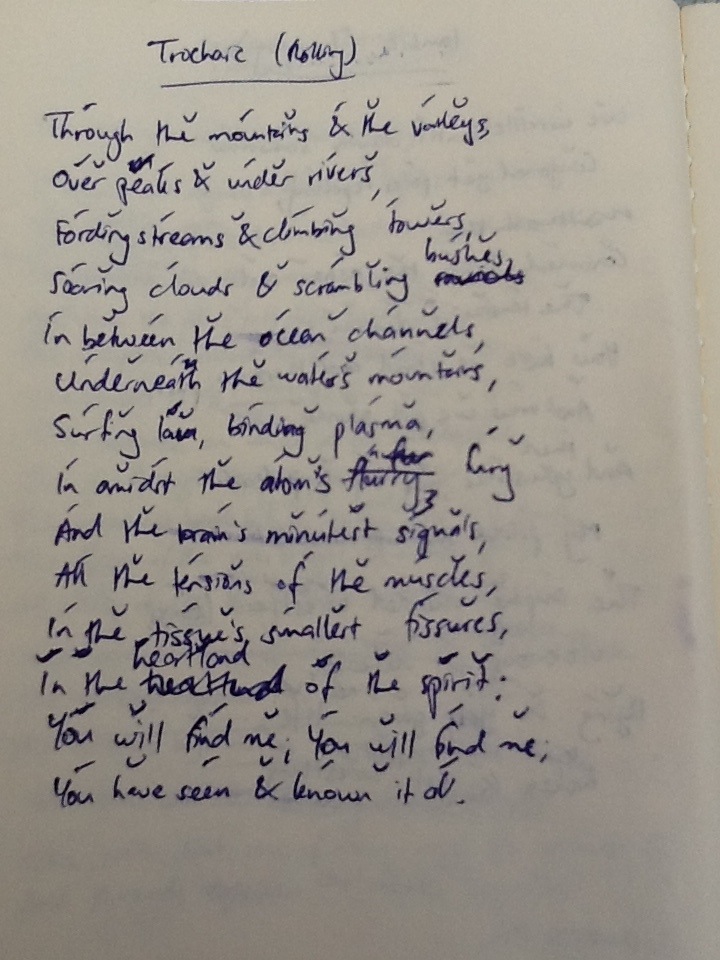 Trochaic (Rolling)
Through the mountains & the valleys,
Over peaks & under rivers,
Fording streams & climbing towers,
bushes,
Soaring clouds & scrambling
In between the ocean channels,
Underneath the water's mountains,
Surfing lava, binding plasma,
In amidst the atom's flurry fury
And the brain's minutest signals,
All the tensions of the muscles,
In the tissue's smallest fissures,
heartland
In the heartland of the spirit:
You will find me; You will find me;
You have seen & known it all.